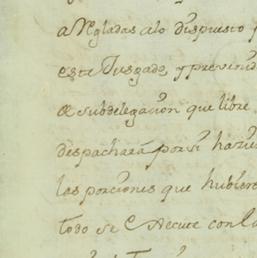 arregladas alo dispuesto
este Juzgado, y previnien
de subdelegacion que libre
despachara por si hazien
las porciones que hubiere
todo se execute con la